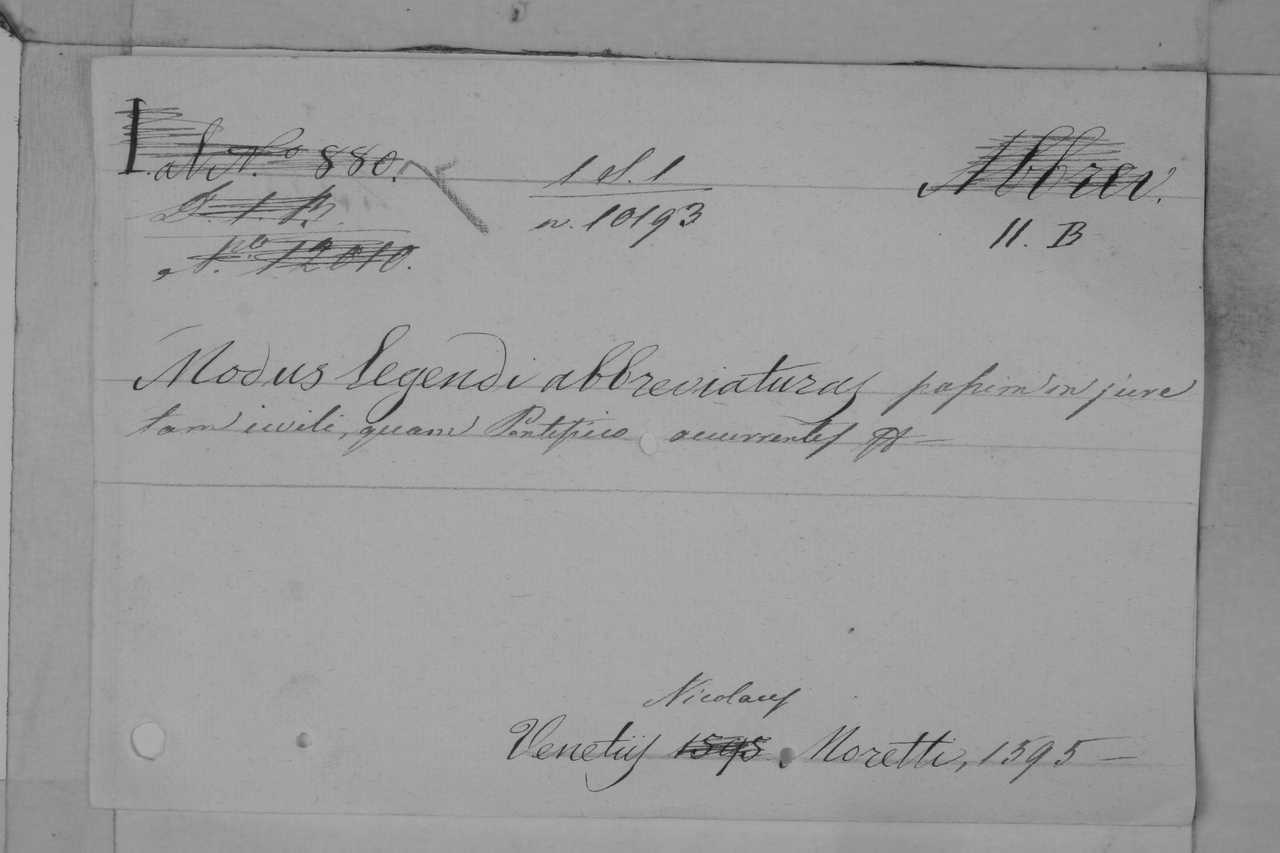 I. ad N.º 880.
1 d. 1
Abbrev.
D. 1. B.
n. 10193
11. B
N.ro 12010.
Modus legendi abbreviaturas passim in jure
tam civili, quam Pontificio occurrentes
Nicolaus
Venetiis 1595 Moretti, 1595 —